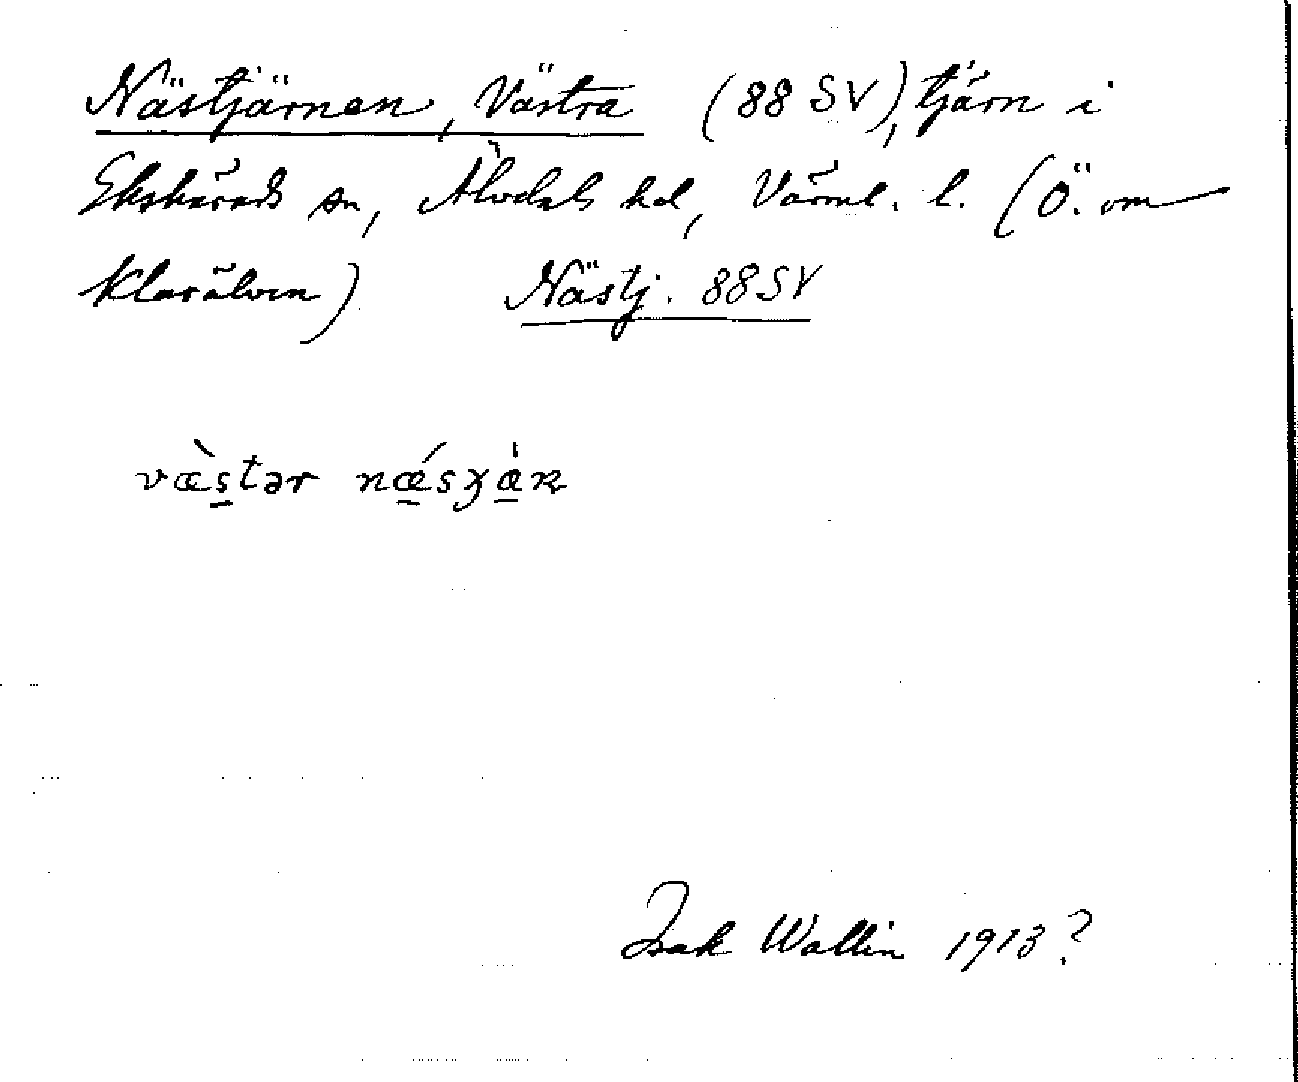 Nästjärnen, Västra (88 SV), tjärn i
Ekshärads sn, Älvdals hd, Värml. l. (Ö. om
Klarälven) Nästj. 88 SV
væ̀stər
Isak Wallin 1913?